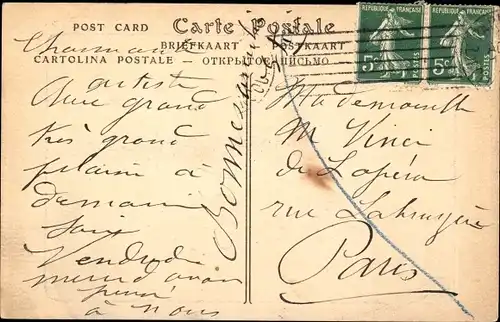 POST CARD
Carte Postale
BRIEFKAART
POSTKAART
CARTOLINA POSTALE — ОТКРЫТОЕ ПИСЬМО
REPUBLIQUE FRANÇAISE
5c
POSTES
REPUBLIQUE FRANÇAISE
5c
POSTES
artiste
Avec grand
très grand
plaisir à
demain
soir
Vendredi
merci d'avoir
pensé
à nous
Mademoiselle
M Vinci
de l'opéra
rue Labruyère
Paris